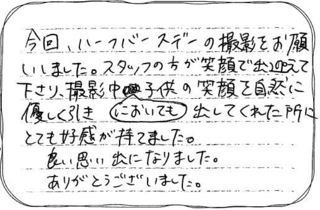 今回、ハーフバースデーの撮影をお願
いしました。スタッフの方が笑顔で出迎えて
下さり、撮影中子供の笑顔を自然に
優しく引き においても 出してくれた所に
とても好感が持てました。
良い思い出になりました。
ありがとうございました。